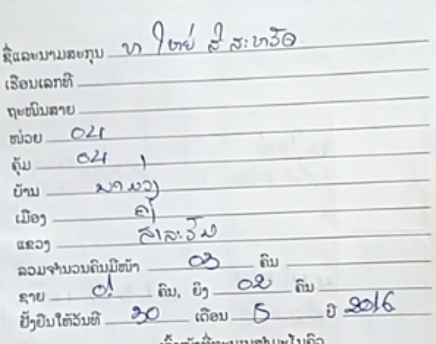 ຊື່ແລະນາມສະກຸນ ທ ໃຫຍ່ ສີ ສະຫວັດ
ເຮືອນເລກທີ
ຖະໜົນສາຍ
ໜ່ວຍ 04
ຄຸ້ມ 04
ບ້ານ
ເມືອງ
ແຂວງ ສາລະວັນ
ລວມຈຳນວນຄົນມີໜ້າ 03 ຄົນ
ຊາຍ 01 ຄົນ, ຍິງ 02 ຄົນ
ຢັ້ງຢືນໃຫ້ວັນທີ 30 ເດືອນ 5 ປີ 2016